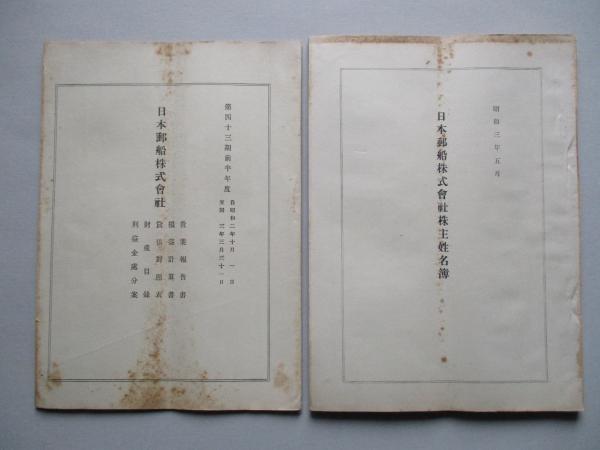 第四十三期前半年度
自昭和二年十月一日
至同三年三月三十一日
日本郵船株式會社
營業報告書
損益計算書
貸借對照表
財産目録
利益金處分案
昭和三年五月
日本郵船株式會社株主姓名簿